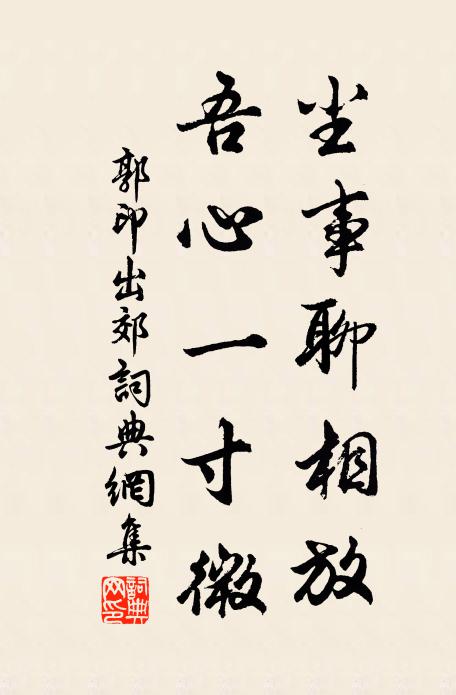 尘事聊相放
吾心一寸微
郭印出郊詞典網集
詞典網印